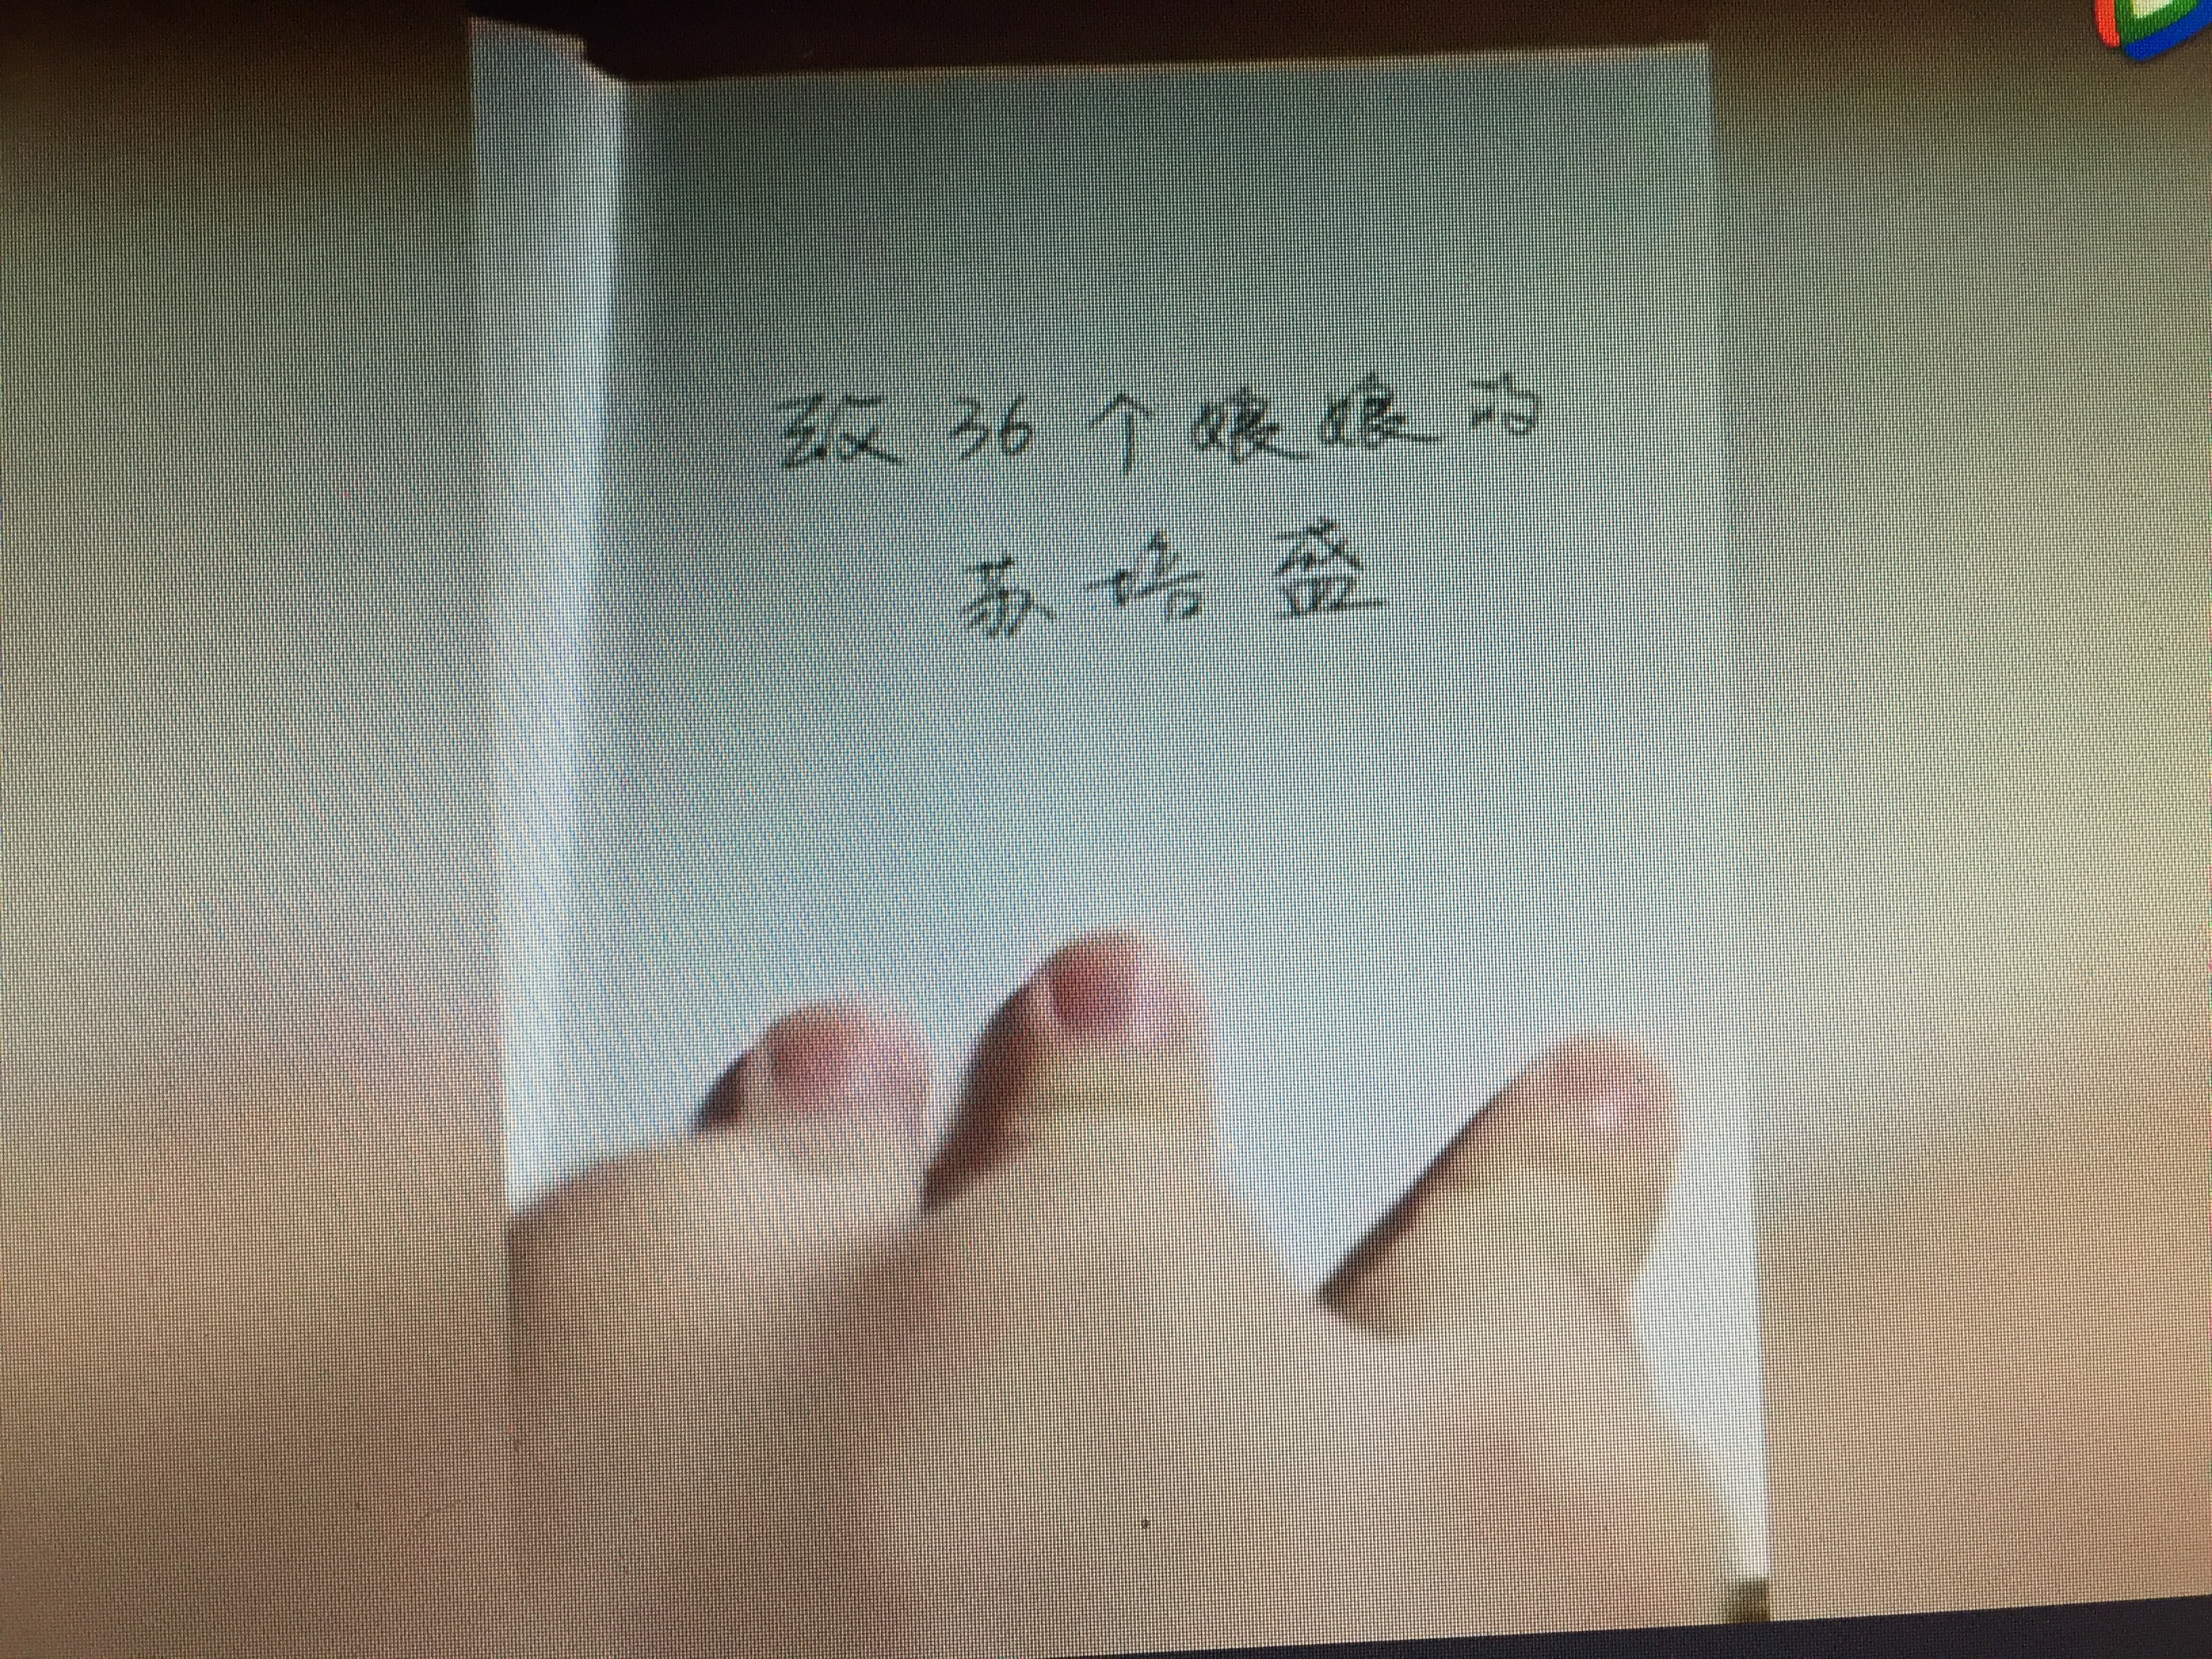 致36个娘娘的
苏培盛